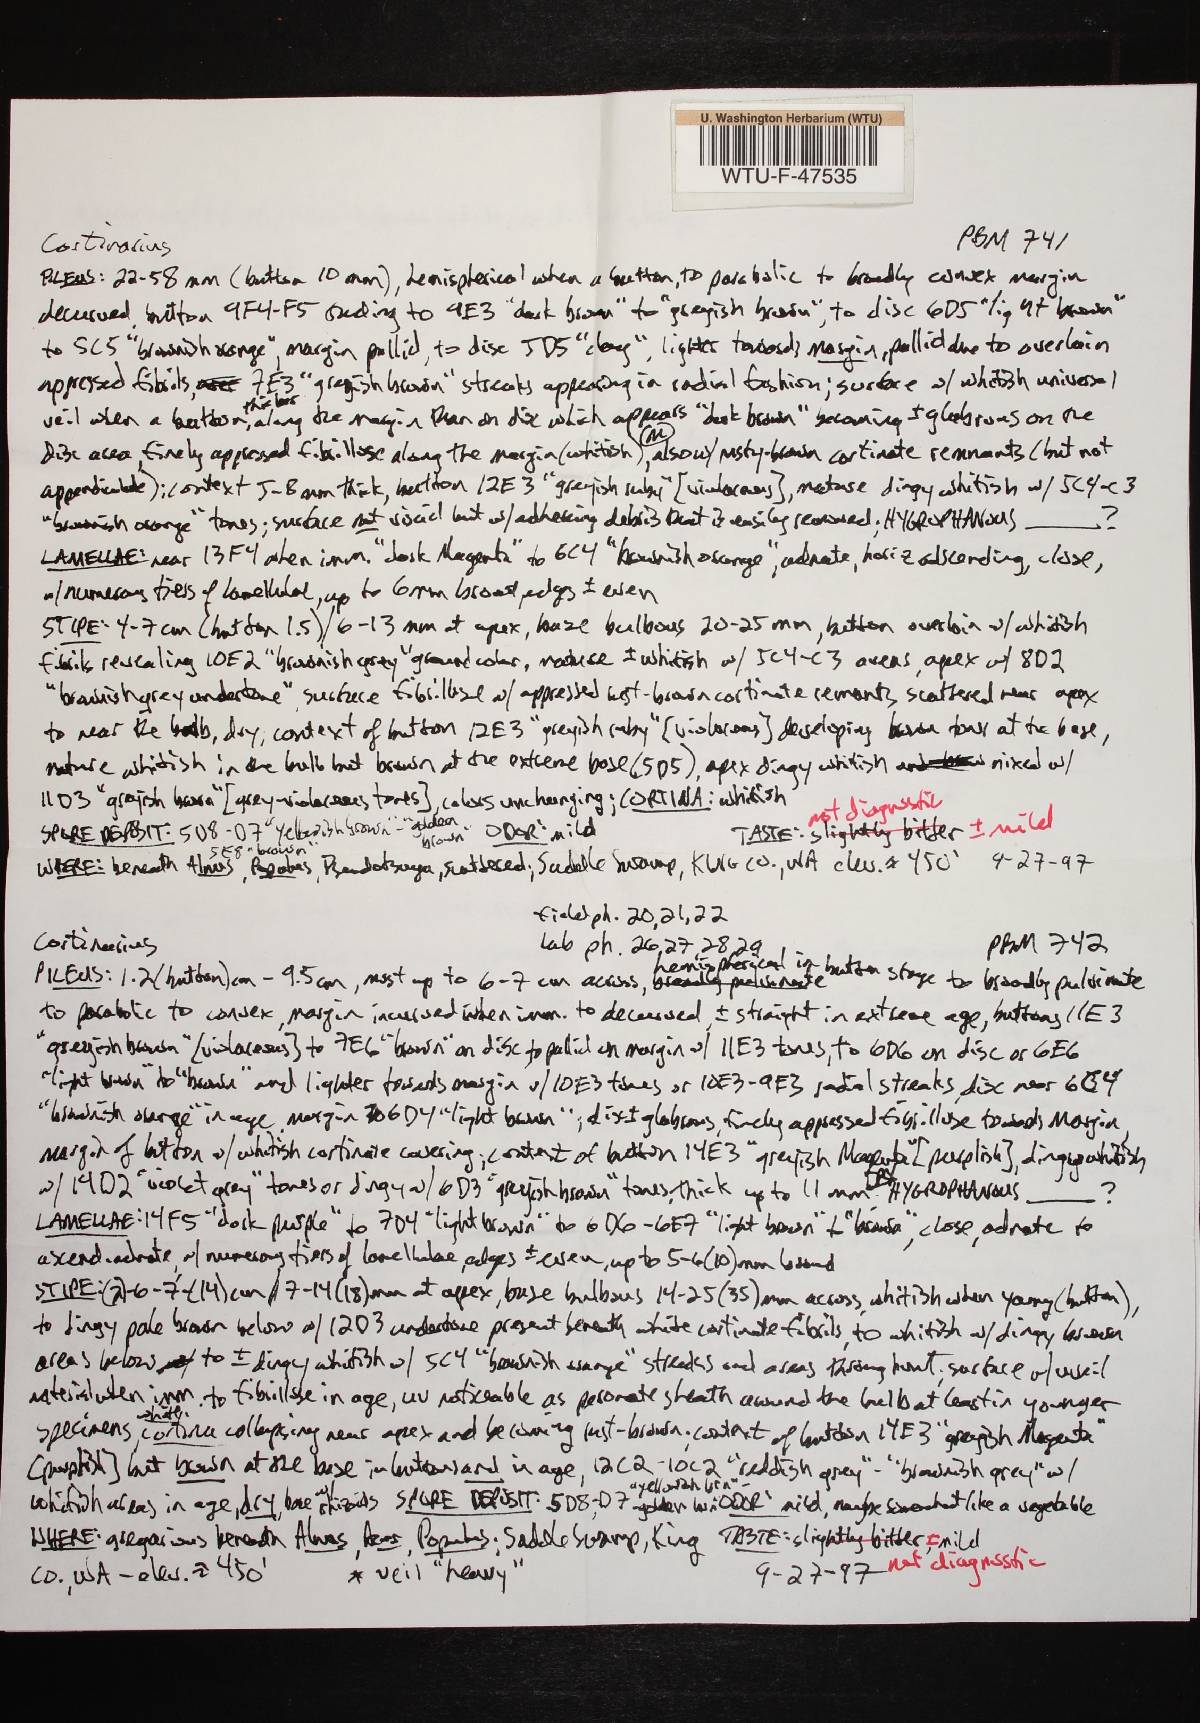 U. Washington Herbarium (WTU)
WTU-F-47535
Cortinarius PBM 741
PILEUS: 22-58 mm (button 10 mm), hemispherical when a button, to parabolic to broadly convex margin
decurved, button 9F4-F5 fading to 9E3 "dark brown" to "greyish brown", to disc 6D5 "light brown"
to 5C5 "brownish orange", margin pallid, to disc 5D5 "clay", lighter towards margin, pallid due to overlain
appressed fibrils, 7E3 "greyish brown" streaks appearing in radial fashion; surface w/ whitish universal
veil when a button, thicker along the margin than on disc which appears "dark brown" becoming ± glabrous on the
disc area, finely appressed fibrillose along the margin (whitish), also w/ rusty-brown cortinate remnants (but not
appendiculate); context 5-8 mm thick, button 12E3 "greyish ruby" [violaceous], mature dingy whitish w/ 5C4-C3
"brownish orange" tones; surface not viscid but w/ adhering debris that is easily removed; HYGROPHANOUS ____?
LAMELLAE: near 13F4 when imm. "dark Magenta" to 6C4 "brownish orange", adnate, horiz ascending, close,
w/ numerous tiers of lamellulae, up to 6mm broad, edges ± even
STIPE: 4-7 cm (button 1.5)/6-13 mm at apex, base bulbous 20-25 mm, button overlain w/ whitish
fibrils revealing 10E2 "brownish grey" ground color, mature ± whitish w/ 5C4-C3 areas, apex w/ 8D2
"brownish grey undertone", surface fibrillose w/ appressed rust-brown cortinate remants scattered near apex
to near the bulb, dry, context of button 12E3 "greyish ruby" [violaceous] developing brown tones at the base,
mature whitish in the bulb but brown at the extreme base (5D5), apex dingy whitish mixed w/
11D3 "greyish brown" [grey-violaceous tones], colors unchanging; CORTINA: whitish
not diagnostic
SPORE DEPOSIT: 5D8-D7 "yellowish brown" - "golden brown" ODOR: mild TASTE: slightly bitter ± mild
5E8 "brown"
WHERE: beneath Alnus, Populus, Pseudotsuga, scattered; Saddle Swamp, KING CO., WA elev. ≈ 450' 9-27-97
field ph. 20,21,22
lab ph. 26,27,28,29
Cortinarius PBM 742
PILEUS: 1.2 (button) cm - 9.5 cm, most up to 6-7 cm across, broadly pulvinate hemispherical in button stage to broadly pulvinate
to parabolic to convex, margin incurved when imm. to decurved, ± straight in extreme age, buttons 11E3
"greyish brown" [violaceous] to 7E6 "brown" on disc to pallid on margin w/ 11E3 tones, to 6D6 on disc or 6E6
"light brown" to "brown" and lighter towards margin w/ 10E3 tones or 10E3-9E3 radial streaks, disc near 6C4
"brownish orange" in age, margin 6D4 "light brown"; disc ± glabrous, finely appressed fibrillose towards margin,
margin of button w/ whitish cortinate covering; context of button 14E3 "greyish Magenta" [purplish], dingy whitish
w/ 14D2 "violet grey" tones or dingy w/ 6D3 "greyish brown" tones, thick up to 11 mm. HYGROPHANOUS ____?
LAMELLAE: 14F5 "dark purple" to 7D4 "light brown" to 6D6-6E7 "light brown" to "brown", close, adnate to
ascend. adnate, w/ numerous tiers of lamellulae, edges ± even, up to 5-6(10) mm broad
STIPE: (2)-6-7-(14) cm / 7-14(18) mm at apex, base bulbous 14-25(35) mm across, whitish when young (button),
to dingy pale brown below w/ 12D3 undertone present beneath white cortinate fibrils, to whitish w/ dingy brown
areas below to ± dingy whitish w/ 5C4 "brownish orange" streaks and areas throughout. surface w/ veil
material when imm. to fibrillose in age, uv noticeable as peronate sheath around the bulb at least in younger
specimens, white cortina collapsing near apex and becoming rust-brown; context of button 14E3 "greyish Magenta"
[purplish] but brown at the base in buttons and in age, 12C2-10C2 "reddish grey" - "brownish grey" w/
whitish areas in age, dry, base w/ rhizoids SPORE DEPOSIT: 5D8-D7 "yellowish brn" - golden brn ODOR: mild, maybe somewhat like a vegetable
WHERE: gregarious beneath Alnus, Acer, Populus; Saddle Swamp, King TASTE: slightly bitter, ± mild
CO., WA - elev. ≈ 450' * veil "heavy" 9-27-97 not diagnostic